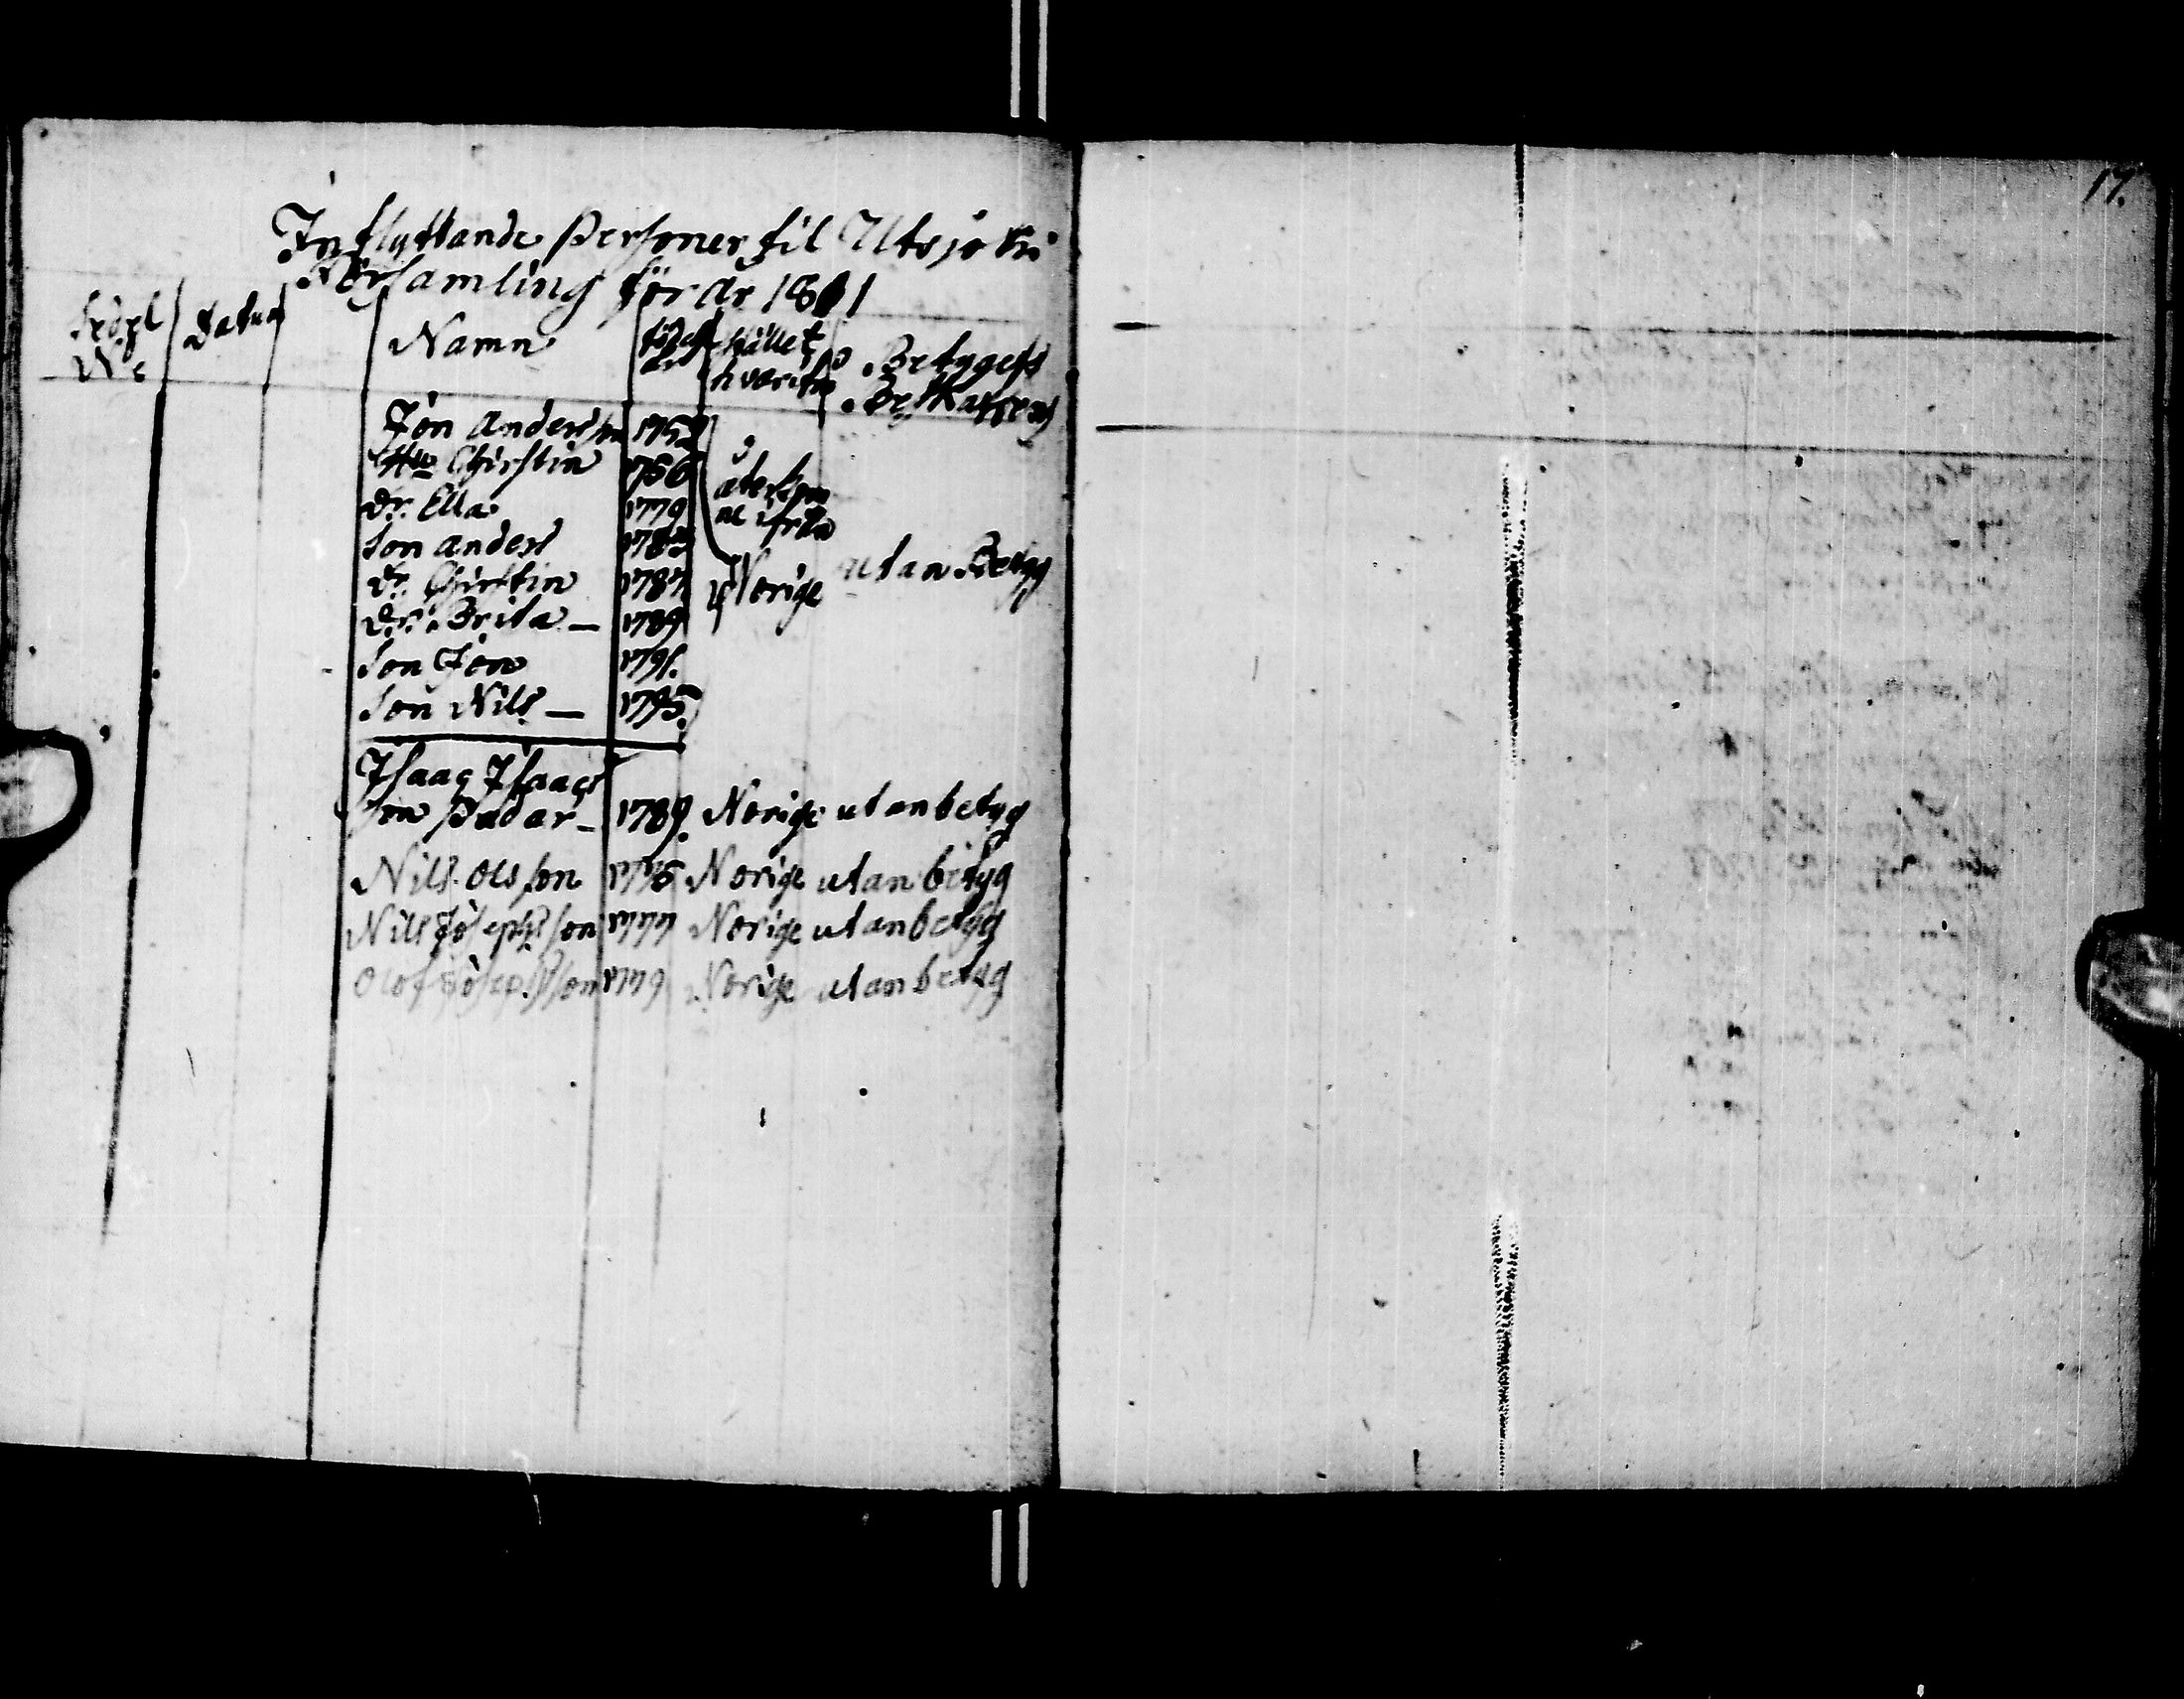 17.
Inflyttande Personer til Utsjoki
Församling för år 1801
Sedel No
Datum
Namn
födelse år
stället hvarifrån
Betygets Beskaffenh
Jon Andersson 1752
Hu Christin 1756
dr. Ella 1779
Son Anders 1783
dr. Christin 1787
dr. Brita — 1789
Son Jon 1791.
Son Nils — 1795.
återkomne ifrån
Norige utan Betyg
Isaac Isaacs
son Padar — 1789. Norige utan betyg
Nils Olsson 1776 Norige utan betyg
Nils Josephsson 1777 Norige utan betyg
Olof Josephsson 1779 Norige utan betyg